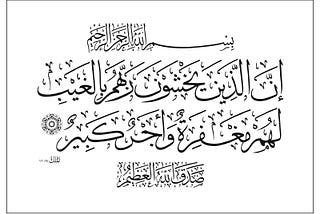 بِسْمِ اللَّهِ الرَّحْمَنِ الرَّحِيمِ
إِنَّ الَّذِينَ يَخْشَوْنَ رَبَّهُمْ بِالْغَيْبِ
لَهُمْ مَغْفِرَةٌ وَأَجْرٌ كَبِيرٌ
صَدَقَ اللَّهُ الْعَظِيمُ